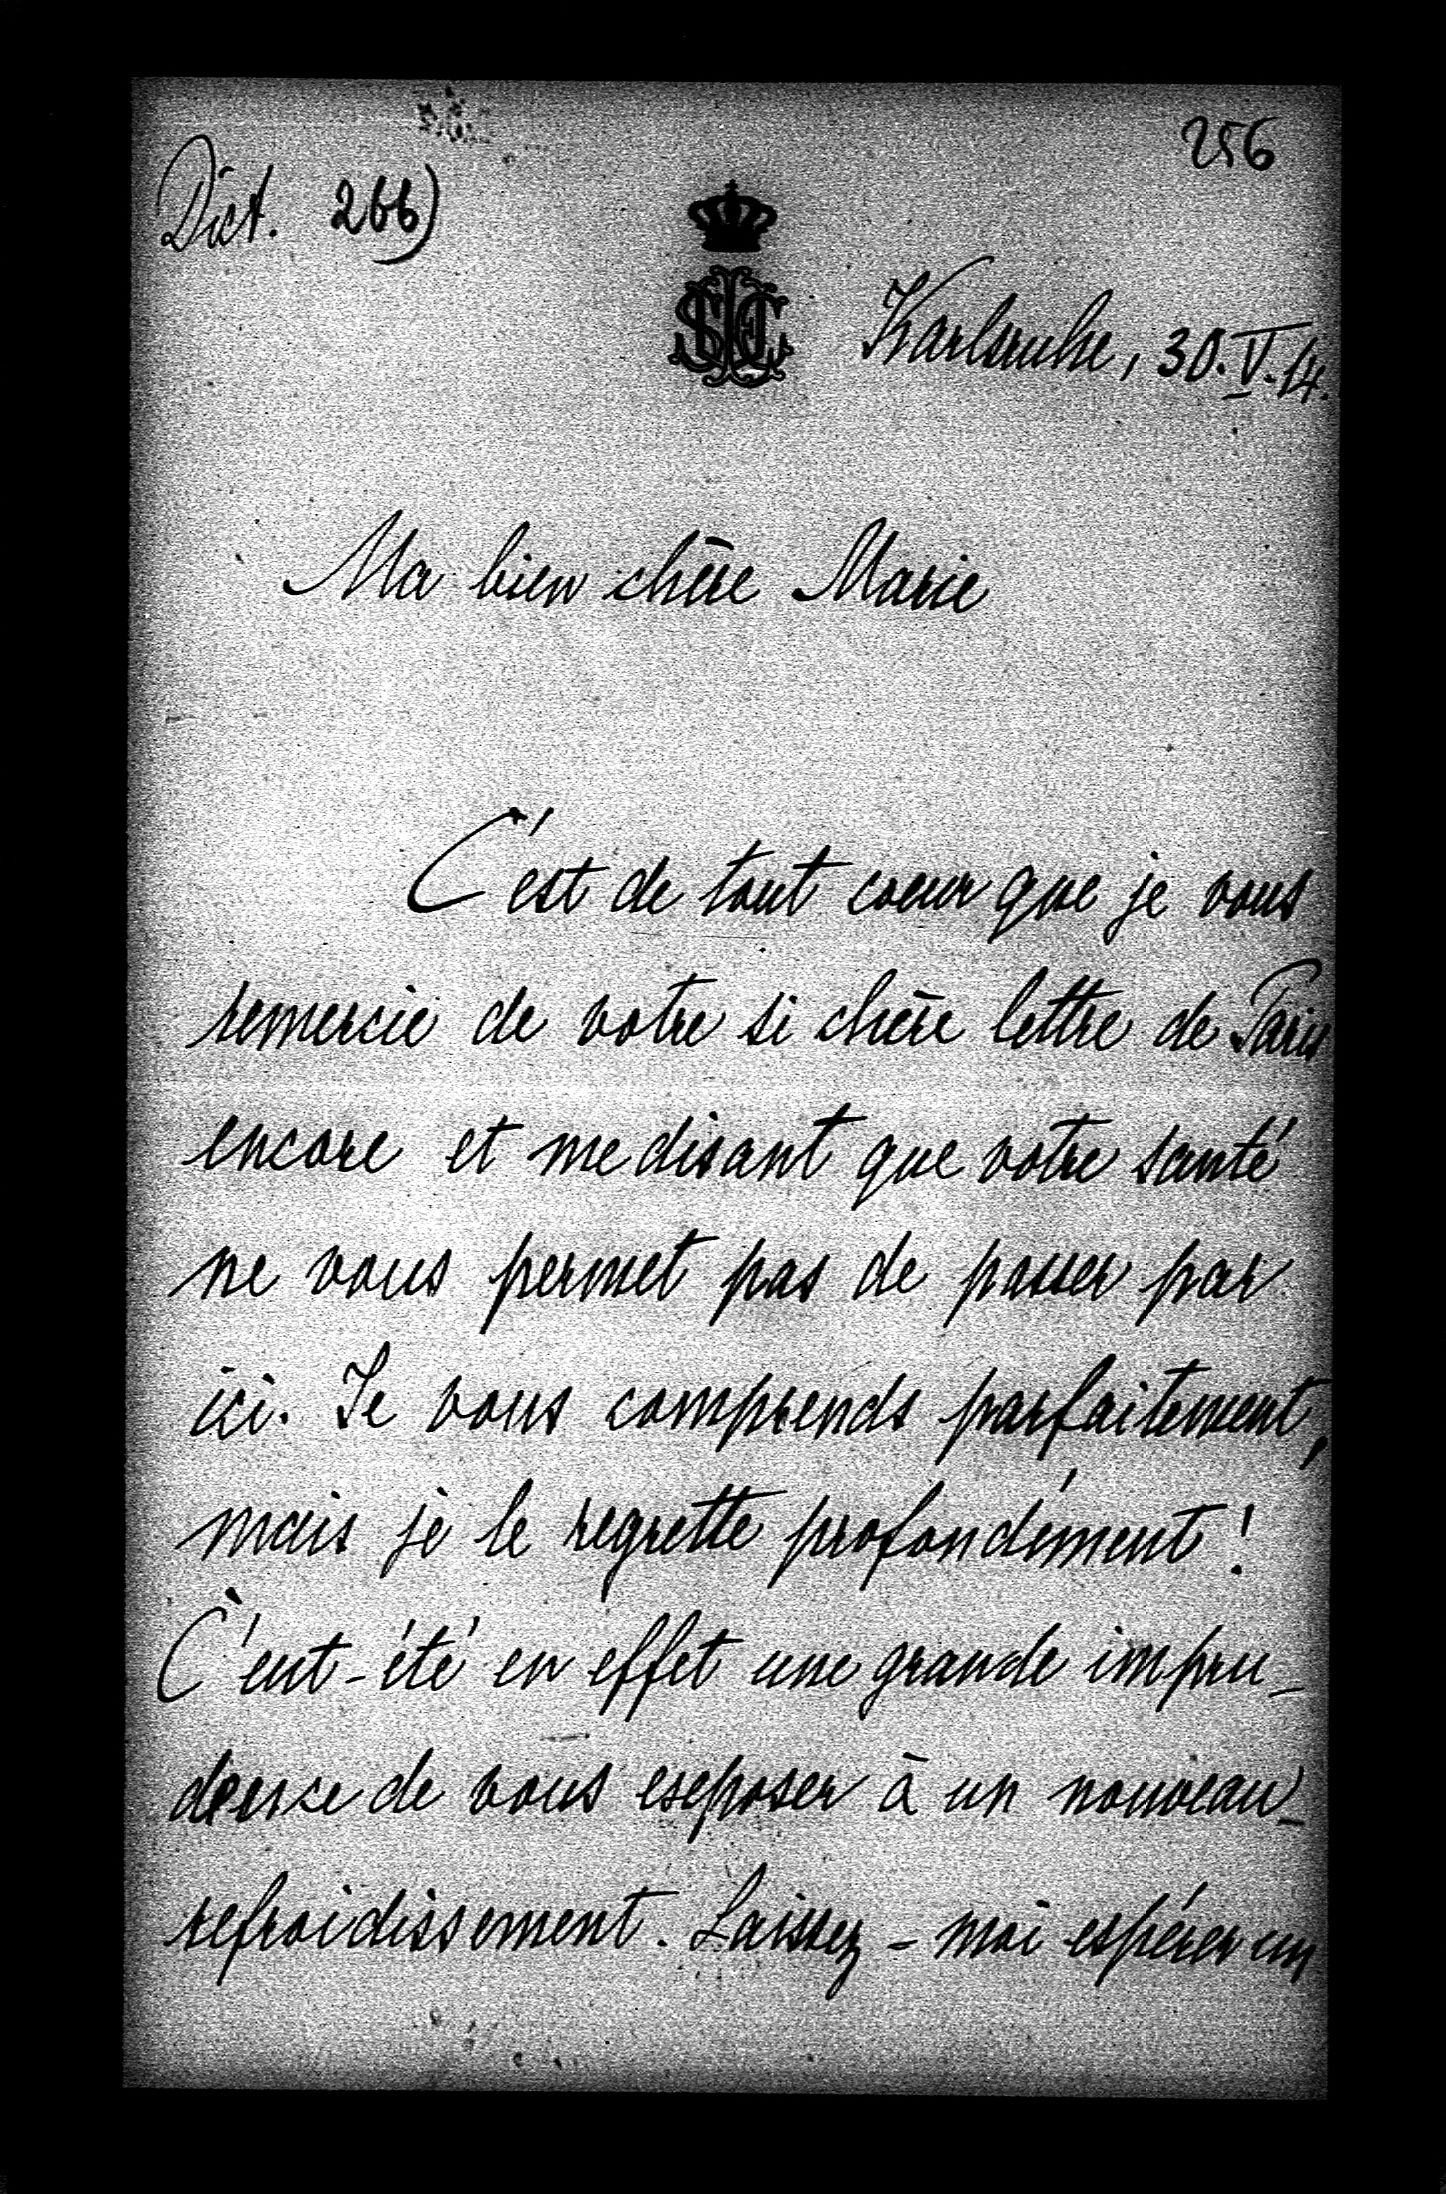 256
Dict. 266)
Karlsruhe, 30.V.14.
Ma bien chère Marie
C'est de tout coeur que je vous
remercie de votre si chère lettre de Paris
encore et me disant que votre santé
ne vous permet pas de passer par
ici. Je vous comprends parfaitement,
mais je le regrette profondément!
C'eut-été en effet une grande impru-
dence de vous exposer à un nouveau
refroidissement. Laissez-moi espérer un